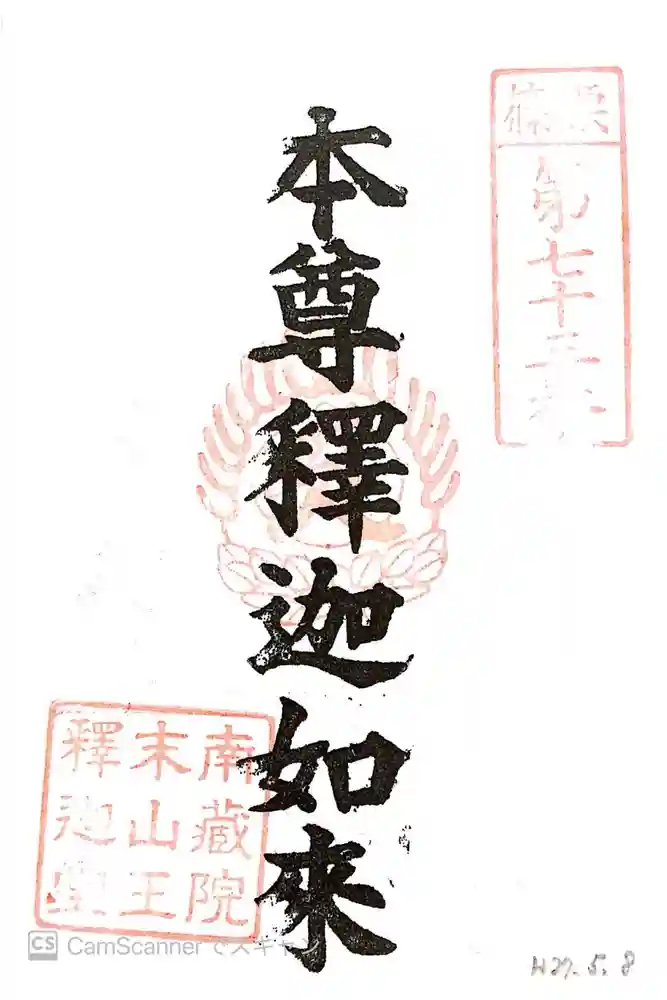 篠栗
第七十三番
本尊釋迦如來
南蔵院
末山王
釋迦堂
CS CamScanner でスキャン
H27.5.8